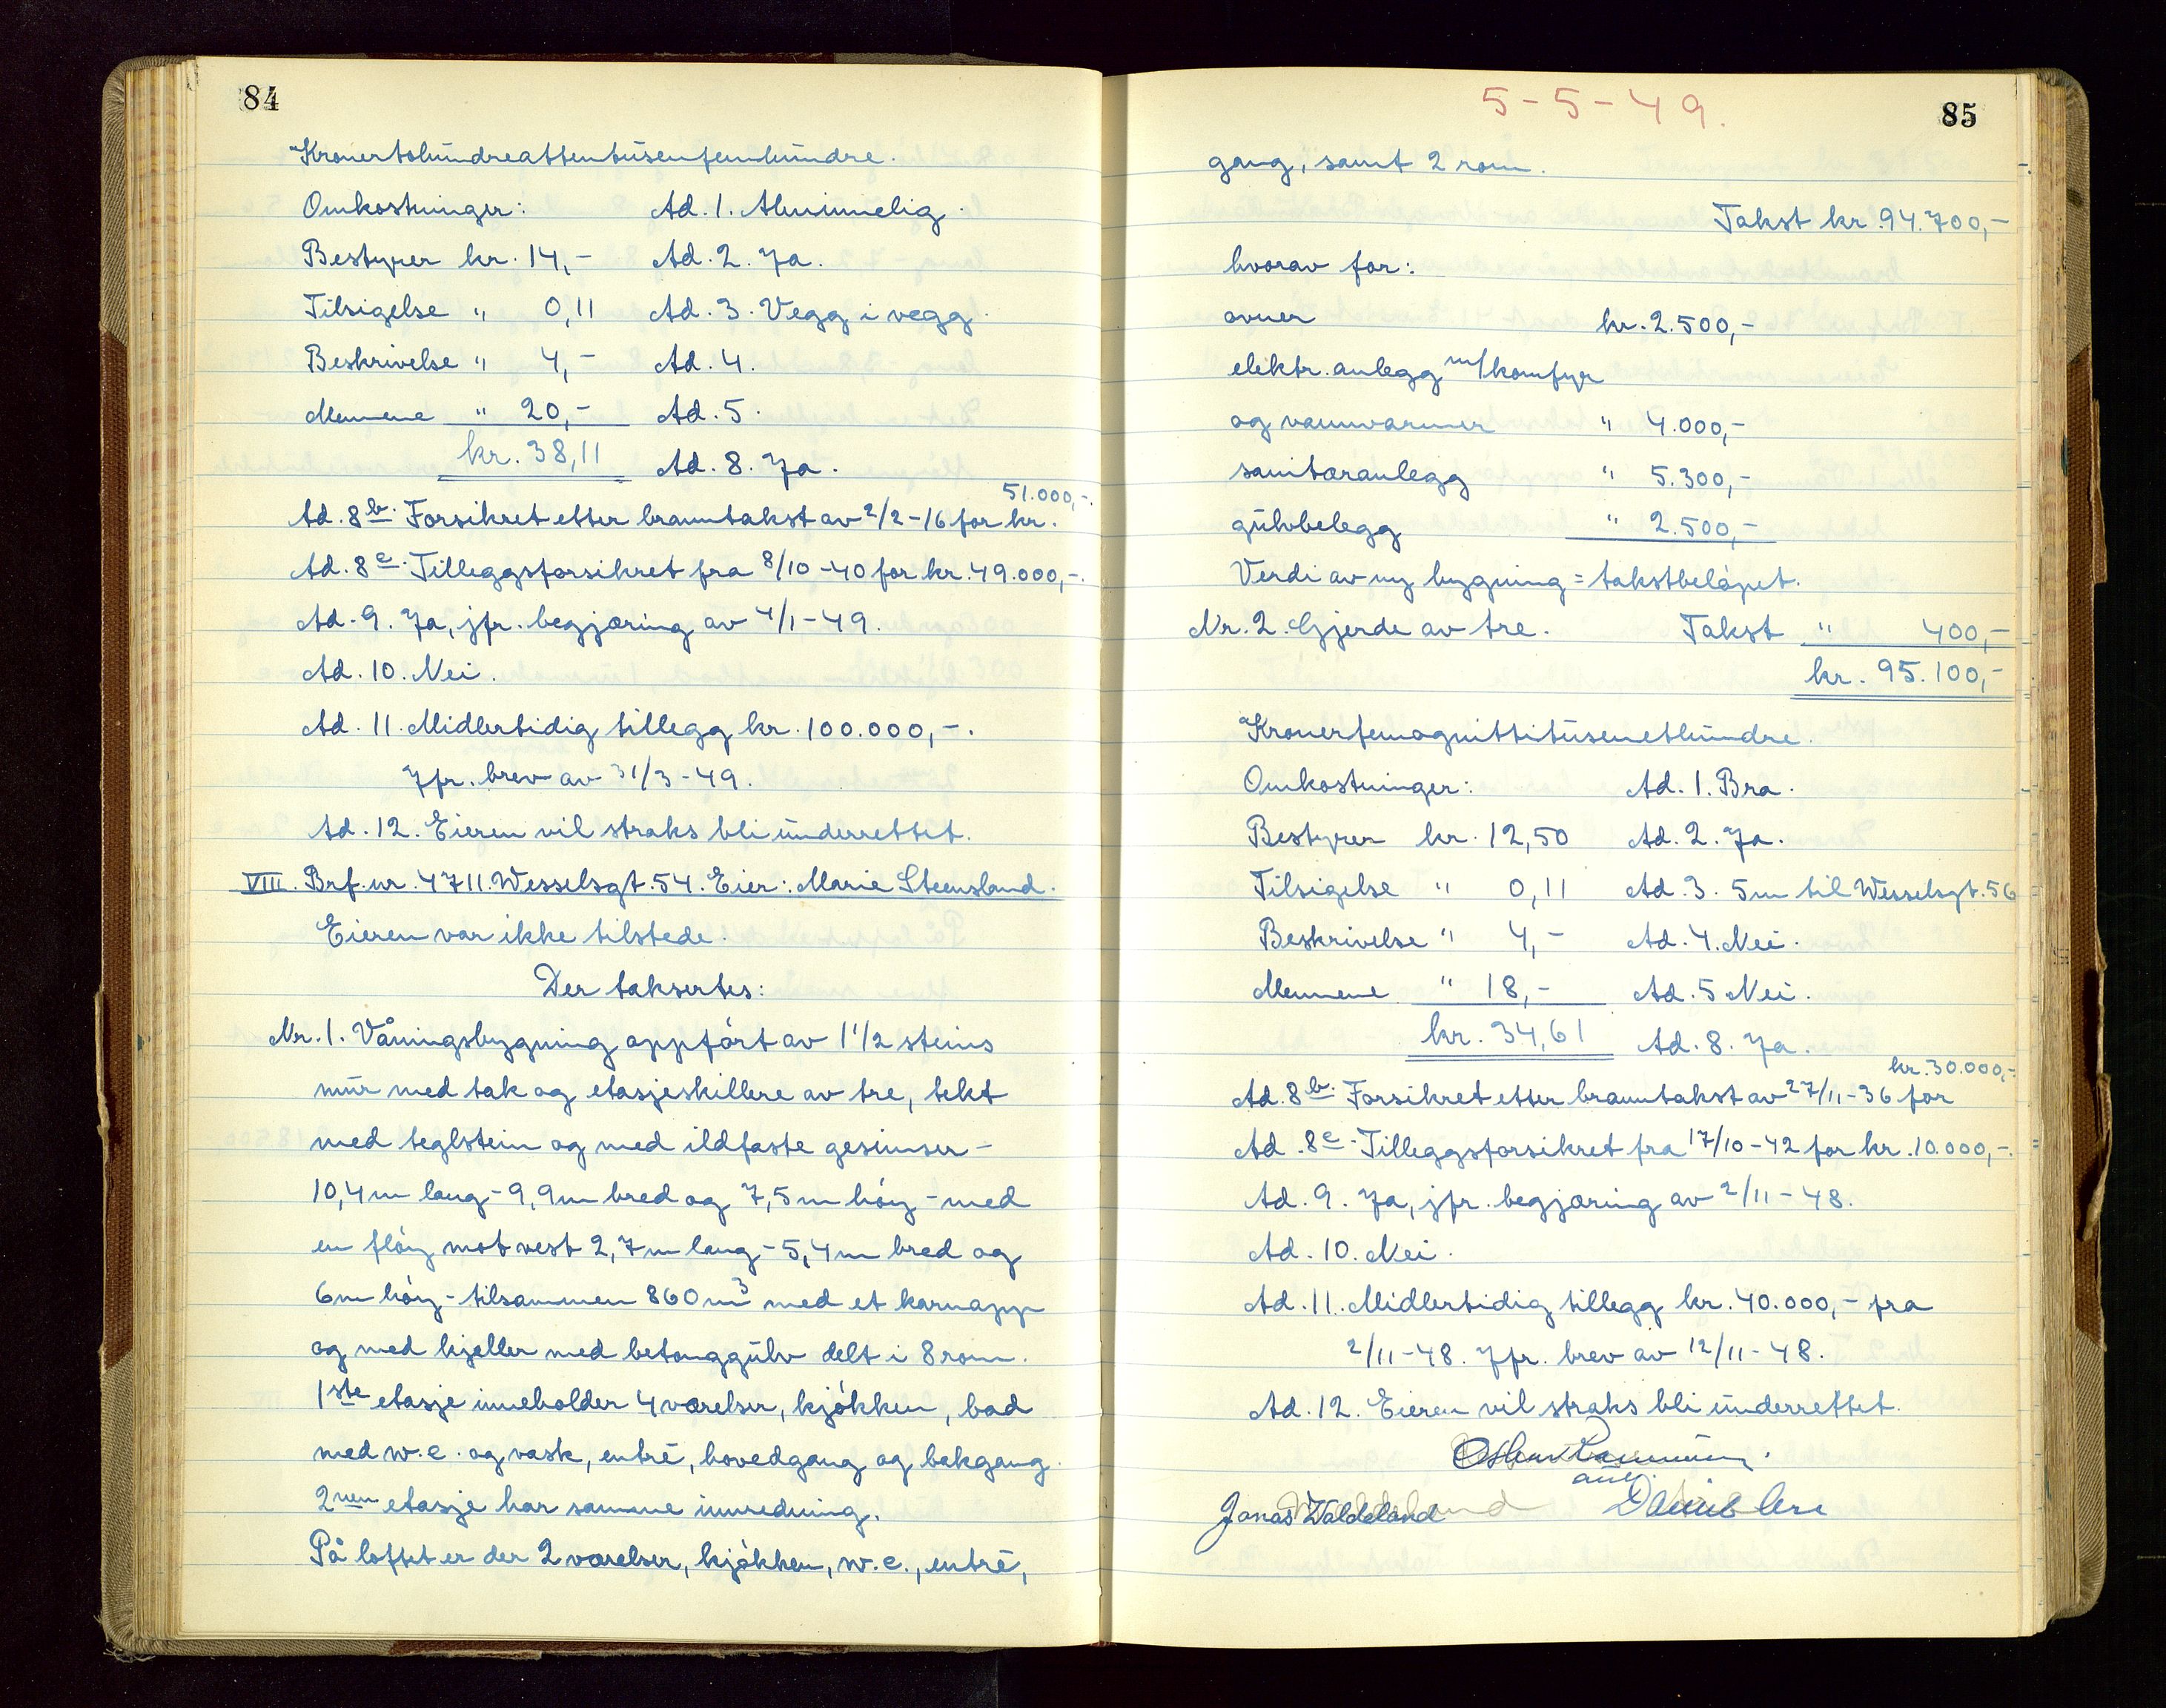 84
"Kronertohundreattentusenfemhundre.
Omkostninger: Ad. 1. Alminnelig.
Bestyrer kr. 14,- Ad. 2. Ja.
Tilsigelse " 0,11 Ad. 3. Vegg i vegg.
Beskrivelse " 4,- Ad. 4.
Mennene " 20,- Ad. 5.
kr. 38,11 Ad. 8. Ja.
51.000,-.
Ad. 8b. Forsikret etter branntakst av 2/2-16 for kr.
Ad. 8c. Tilleggsforsikret fra 8/10-40 for kr. 49.000,-.
Ad. 9. Ja, jfr. begjæring av 4/1-49.
Ad. 10. Nei.
Ad. 11. Midlertidig tillegg kr. 100.000,-.
Jfr. brev av 31/3-49.
Ad. 12. Eieren vil straks bli underrettet.
VIII. Brf. nr. 4711. Wesselsgt. 54. Eier: Marie Steensland.
Eieren var ikke tilstede.
Der taksertes:
Nr. 1. Våningsbygning oppført av 1 1/2 steins
mur med tak og etasjeskillere av tre, tekt
med teglstein og med ildfaste gesimser -
10,4 m lang - 9,9 m bred og 7,5 m høy - med
en fløy mot vest 2,7 m lang - 5,4 m bred og
6 m høy - tilsammen 860 m3 med et karnapp
og med kjeller med betonggulv delt i 8 rom.
1ste etasje inneholder 4 værelser, kjøkken, bad
med w.c. og vask, entré, hovedgang og bakgang.
2nen etasje har samme innredning.
På loftet er der 2 værelser, kjøkken, w.c., entré,
5-5-49.
85
gang, samt 2 rom.
Takst kr. 94.700,-
hvorav for:
ovner kr. 2.500,-
elektr. anlegg m/komfyr
og vannvarmer " 4.000,-
sanitæranlegg " 5.300,-
gulvbelegg " 2.500,-
Verdi av ny bygning = takstbeløpet.
Nr. 2. Gjerde av tre. Takst " 400,-
kr. 95.100,-
"Kronerfemognittitusenethundre.
Omkostninger: Ad. 1. Bra.
Bestyrer kr. 12,50 Ad. 2. Ja.
Tilsigelse " 0,11 Ad. 3. 5m til Wesselsgt. 56
Beskrivelse " 4,- Ad. 4. Nei.
Mennene " 18,- Ad. 5 Nei.
kr. 34,61 Ad. 8. Ja.
kr. 30.000,-.
Ad. 8b. Forsikret etter branntakst av 27/11-36 for
Ad. 8c. Tilleggsforsikret fra 17/10-42 for kr. 10.000,-.
Ad. 9. Ja, jfr. begjæring av 2/11-48.
Ad. 10. Nei.
Ad. 11. Midlertidig tillegg kr. 40.000,- fra
2/11-48. Jfr. brev av 12/11-48.
Ad. 12. Eieren vil straks bli underrettet.
Jonas Waldeland